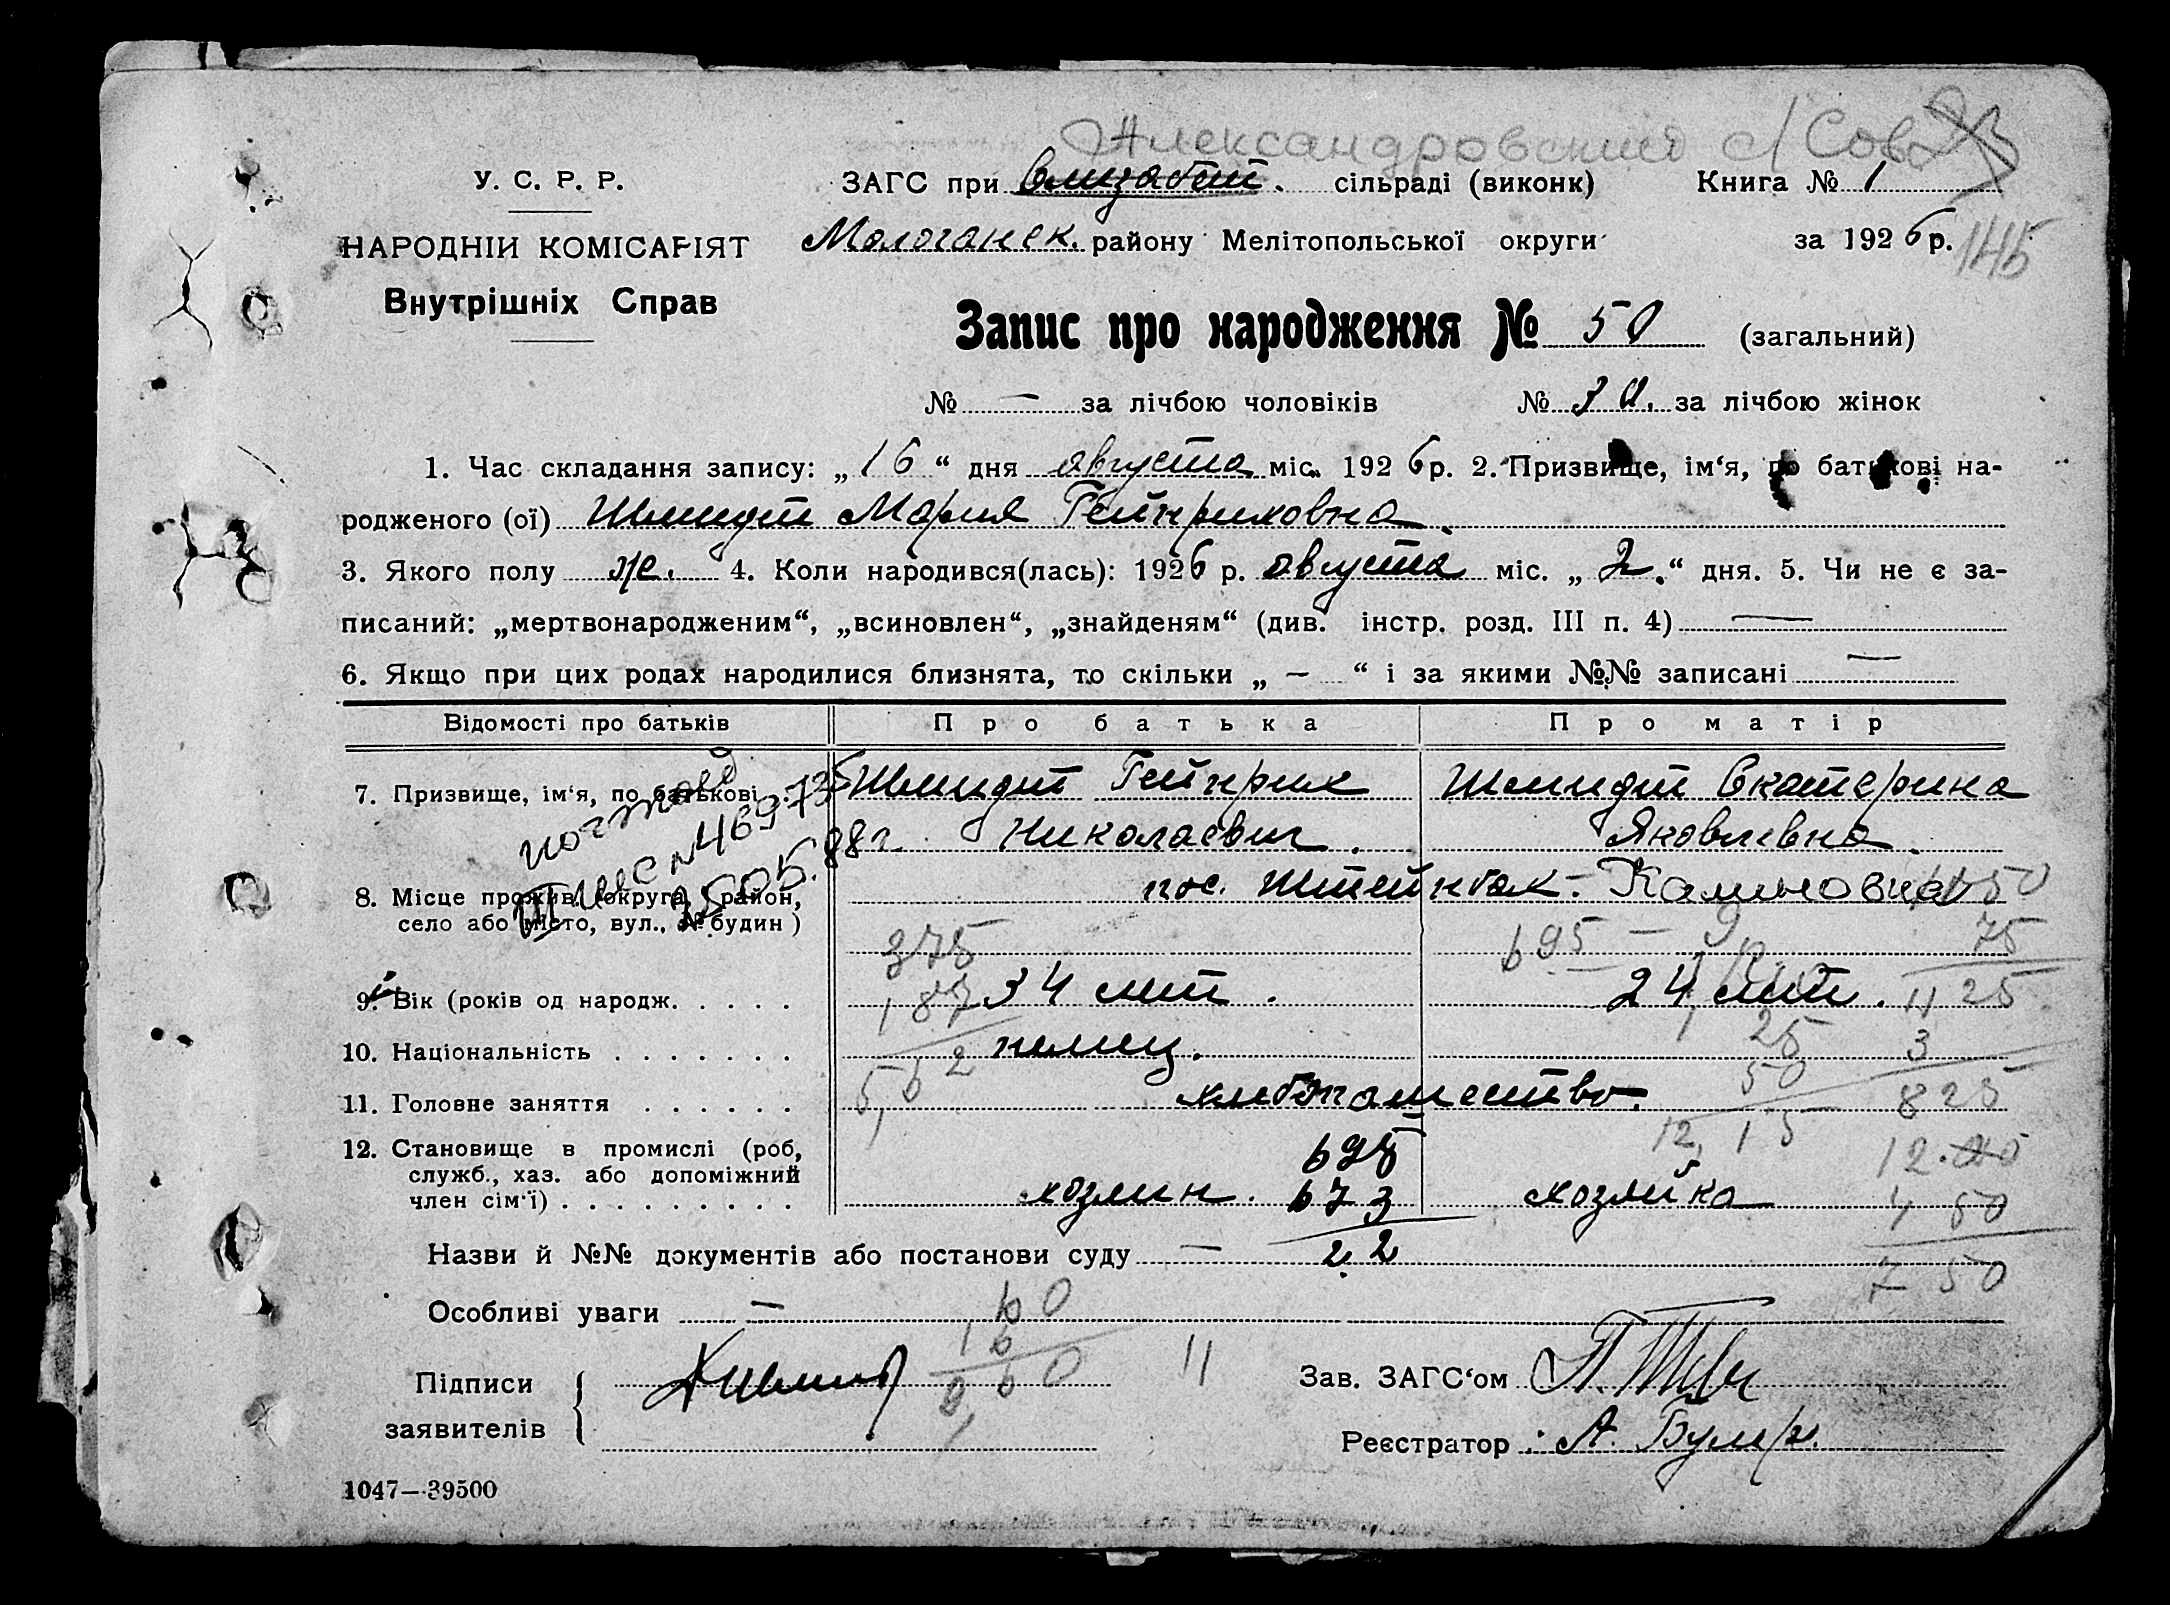 Александровский с/Сов
У. С. Р. Р.
ЗАГС при Елизабет. сільраді (виконк) Книга № 1
НАРОДНІЙ КОМІСАРІЯТ
Молочанск. району Мелітопольської округи за 1926 р. 145
Внутрішніх Справ
Запис про народження № 50 (загальний)
№ — за лічбою чоловіків № 30. за лічбою жінок
1. Час складання запису: „16“ дня августа міс. 1926 р. 2. Призвище, ім‘я, по батькові на-
родженого (ої) Шмидт Мария Гейнриховна.
3. Якого полу же. 4. Коли народився(лась): 1926 р. августа міс. „2.“ дня. 5. Чи не є за-
писаний: „мертвонародженим“, „всиновлен“, „знайденям“ (див. інстр. розд. III п. 4) —
6. Якщо при цих родах народилися близнята, то скільки „ — “ і за якими №№ записані —
Відомості про батьків Про батька Про матір
7. Призвище, ім‘я, по батькові . . Шмидт Гейнрих Шмидт Екатерина
Николаевич. Яковлевна.
8. Місце прожив. (округа, район, пос. Штейнбах - Калиновка 50
село або місто, вул., № будин)
375 695 — 9 75
9. Вік (років од народж. . . . . 34 лет. 24 лет. 11 25
187 1 25 3
10. Національність . . . . . . . немец.
5,62 50
11. Головне заняття . . . . . . хлебопашество. 825
12, 15
12. Становище в промислі (роб,
служб., хаз. або допоміжний
член сім‘ї) . . . . . . . . . хозяин. хозяйка
695 673 22
4 50
7 50
Назви й №№ документів або постанови суду —
Особливі уваги —
60
16
0,60 11
Підписи Зав. ЗАГС‘ом
заявителів Реєстратор
1047—39500